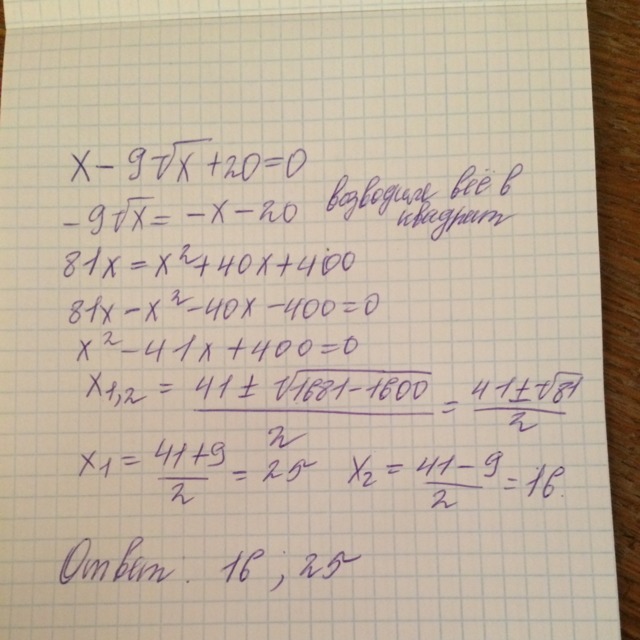 x - 9√x + 20 = 0
-9√x = -x - 20 возводим всё в квадрат
81x = x² + 40x + 400
81x - x² - 40x - 400 = 0
x² - 41x + 400 = 0
x₁,₂ = (41 ± √(1681 - 1600))/2 = (41 ± √81)/2
x₁ = (41 + 9)/2 = 25 x₂ = (41 - 9)/2 = 16.
Ответ: 16 ; 25